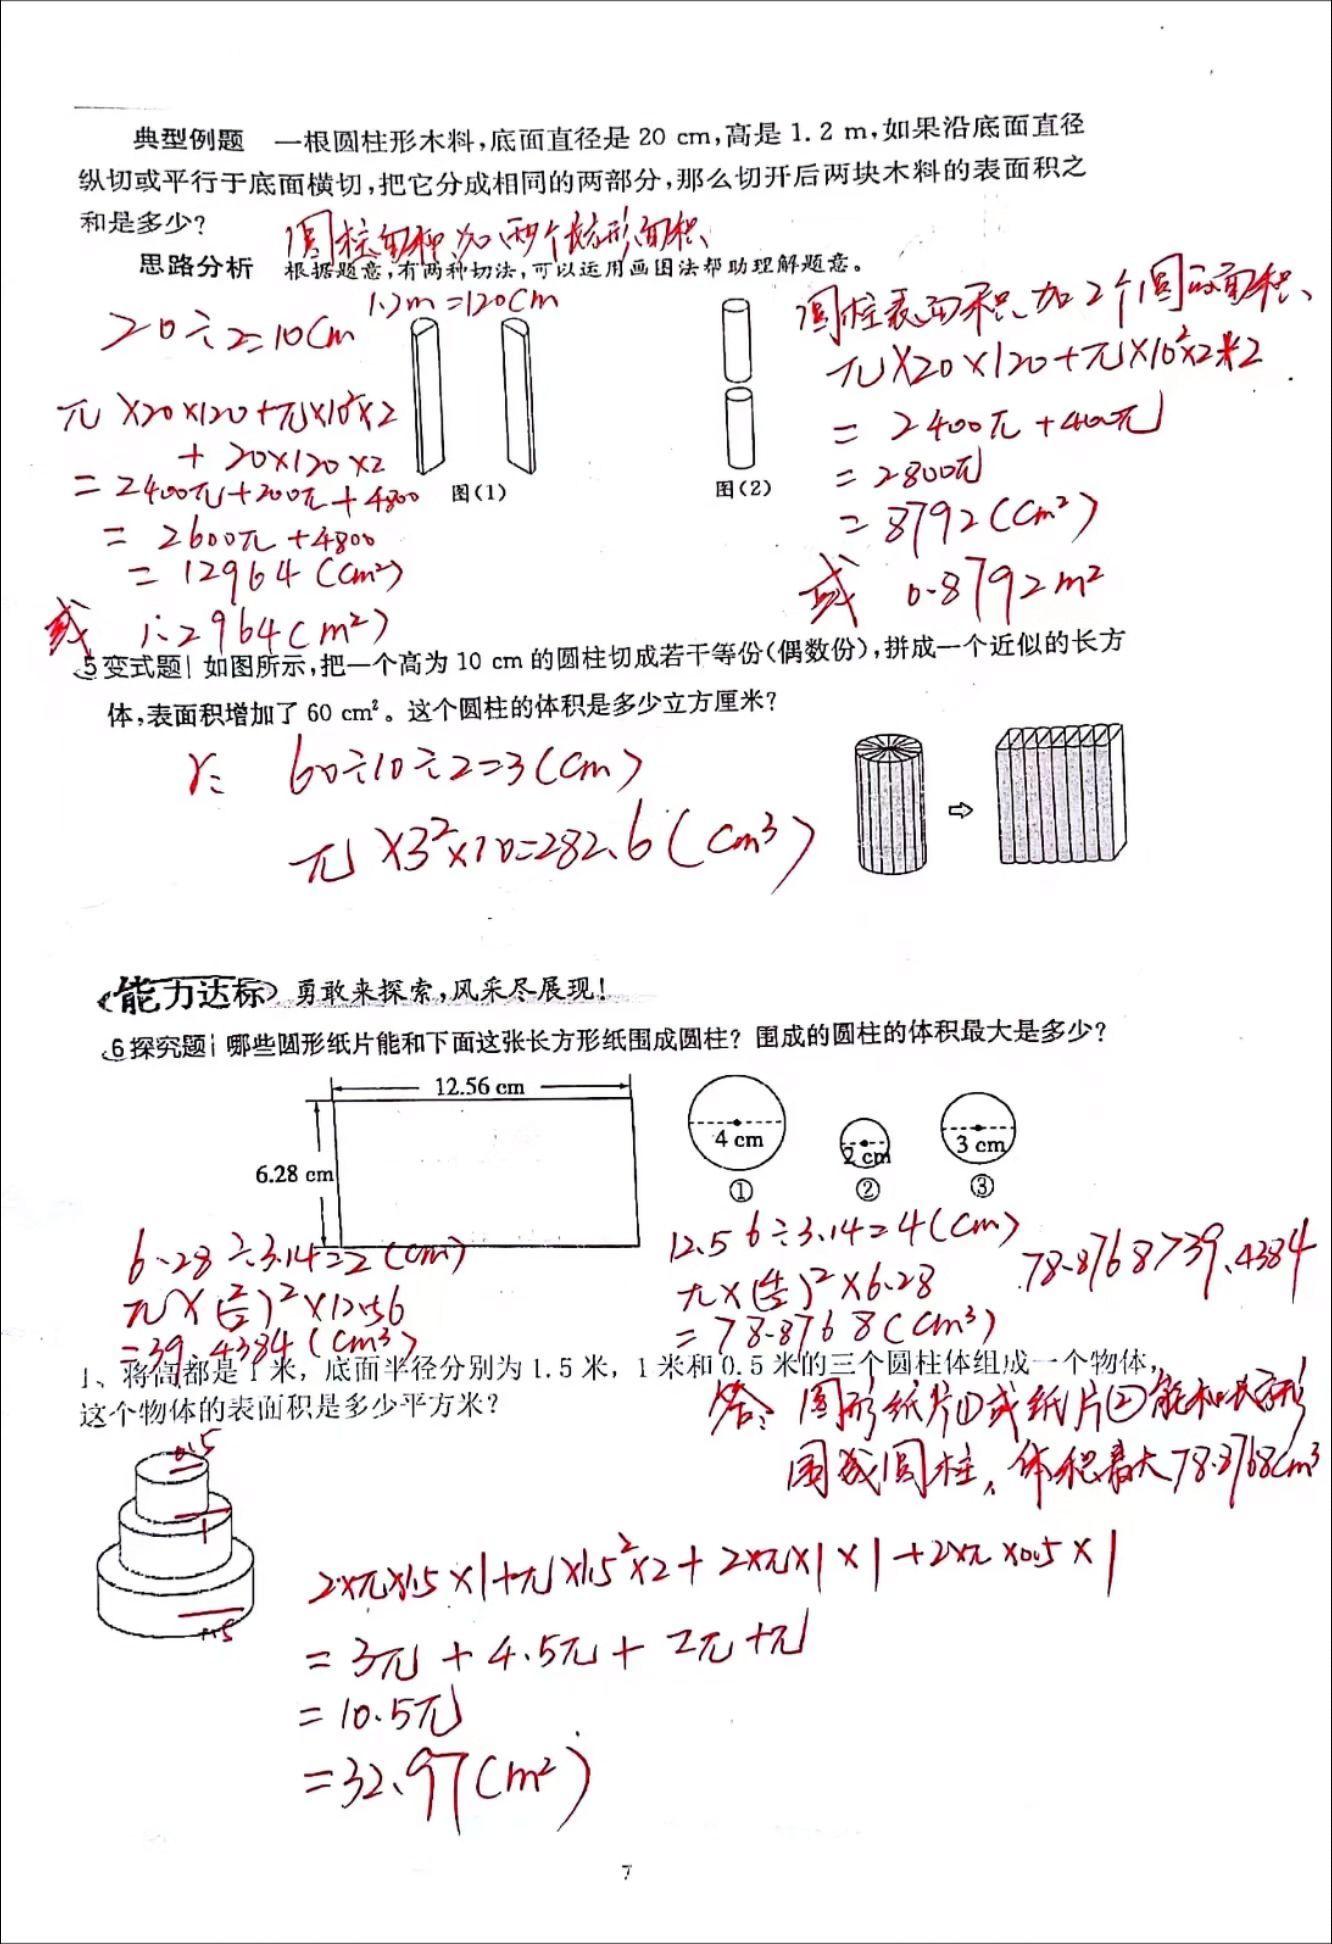 典型例题 一根圆柱形木料,底面直径是 20 cm,高是 1.2 m,如果沿底面直径
纵切或平行于底面横切,把它分成相同的两部分,那么切开后两块木料的表面积之
和是多少?
圆柱面积加两个长方形面积
思路分析 根据题意,有两种切法,可以运用画图法帮助理解题意。
1.2m=120cm
20÷2=10cm
π×20×120+π×10²×2
+20×120×2
=2400π+200π+4800
=2600π+4800
=12964(cm²)
或 1.2964(m²)
图(1)
图(2)
圆柱表面积加2个圆的面积
π×20×120+π×10²×2×2
=2400π+400π
=2800π
=8792(cm²)
或 0.8792m²
5 变式题 如图所示,把一个高为 10 cm 的圆柱切成若干等份(偶数份),拼成一个近似的长方
体,表面积增加了 60 cm²。这个圆柱的体积是多少立方厘米?
r: 60÷10÷2=3(cm)
π×3²×10=282.6(cm³)
能力达标 勇敢来探索,风采尽展现!
6 探究题 哪些圆形纸片能和下面这张长方形纸围成圆柱? 围成的圆柱的体积最大是多少?
12.56 cm
6.28 cm
4 cm
2 cm
3 cm
①
②
③
6.28÷3.14=2(cm)
π×(2/2)²×12.56
=39.4384(cm³)
12.56÷3.14=4(cm)
π×(4/2)²×6.28
=78.8768(cm³)
78.8768>39.4384
1、将高都是 1 米，底面半径分别为 1.5 米，1 米和 0.5 米的三个圆柱体组成一个物体，
这个物体的表面积是多少平方米?
答: 圆形纸片①或纸片②能和长方形
围成圆柱,体积最大78.8768cm³
0.5
1
1.5
2×π×1.5×1+π×1.5²×2+2×π×1×1+2×π×0.5×1
=3π+4.5π+2π+π
=10.5π
=32.97(m²)
7